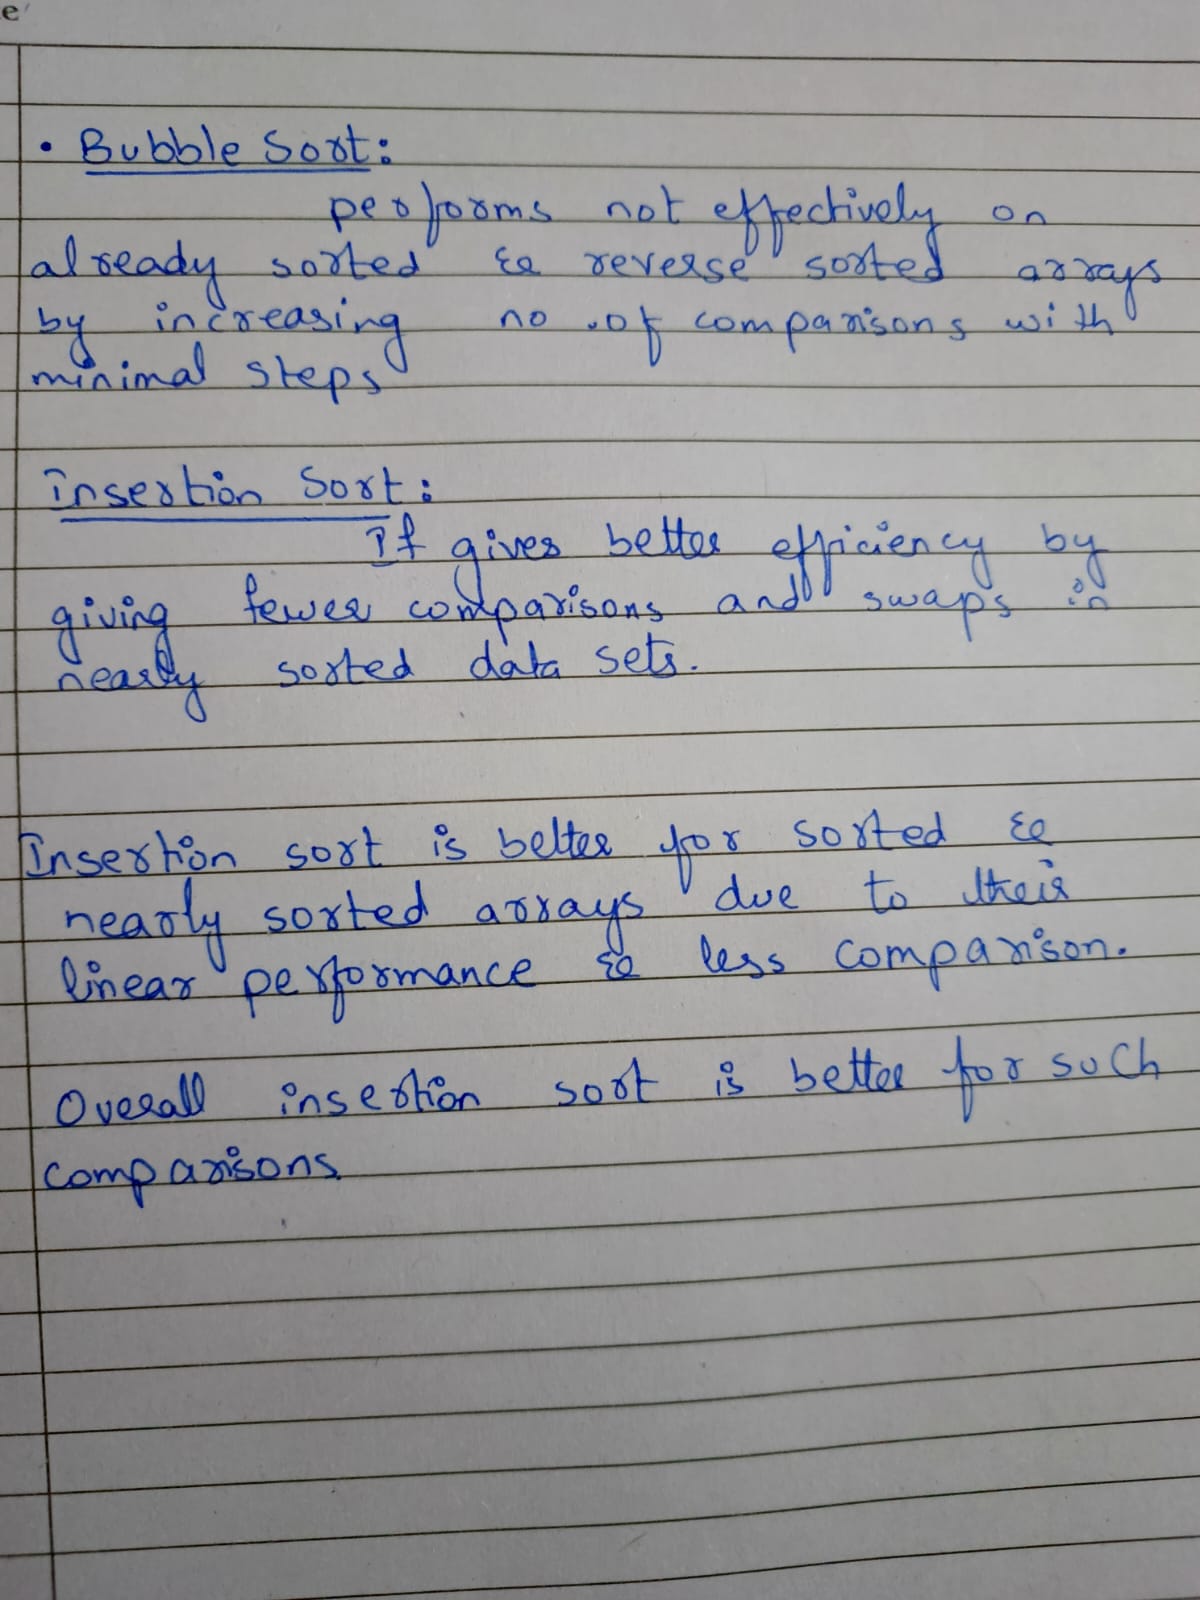 e
• Bubble Sort:
performs not effectively on
already sorted & reverse sorted arrays
by increasing no .of comparisons with
minimal steps
Insertion Sort:
It gives better efficiency by
giving fewer comparisons and swaps in
nearly sorted data sets.
Insertion sort is better for sorted &
nearly sorted arrays due to their
linear performance & less comparison.
Overall insertion sort is better for such
comparisons.